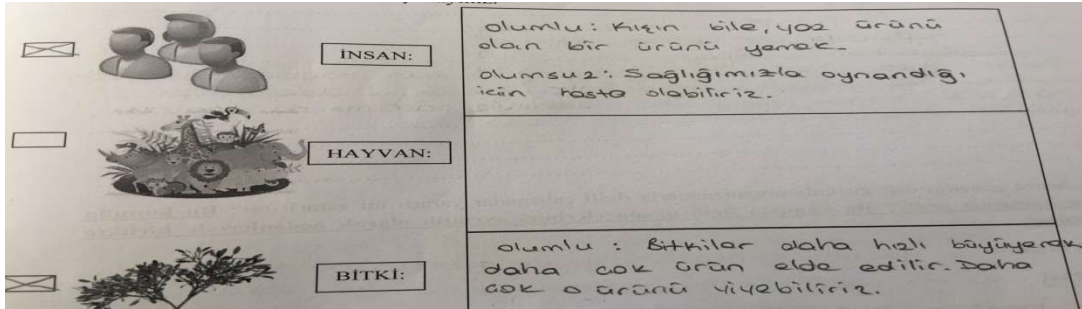 İNSAN:
olumlu: Kışın bile, yaz ürünü
olan bir ürünü yemek.
olumsuz: Sağlığımızla oynandığı
için hasta olabiliriz.
HAYVAN:
BİTKİ:
olumlu : Bitkiler daha hızlı büyüyerek
daha çok ürün elde edilir. Daha
çok o ürünü yiyebiliriz.